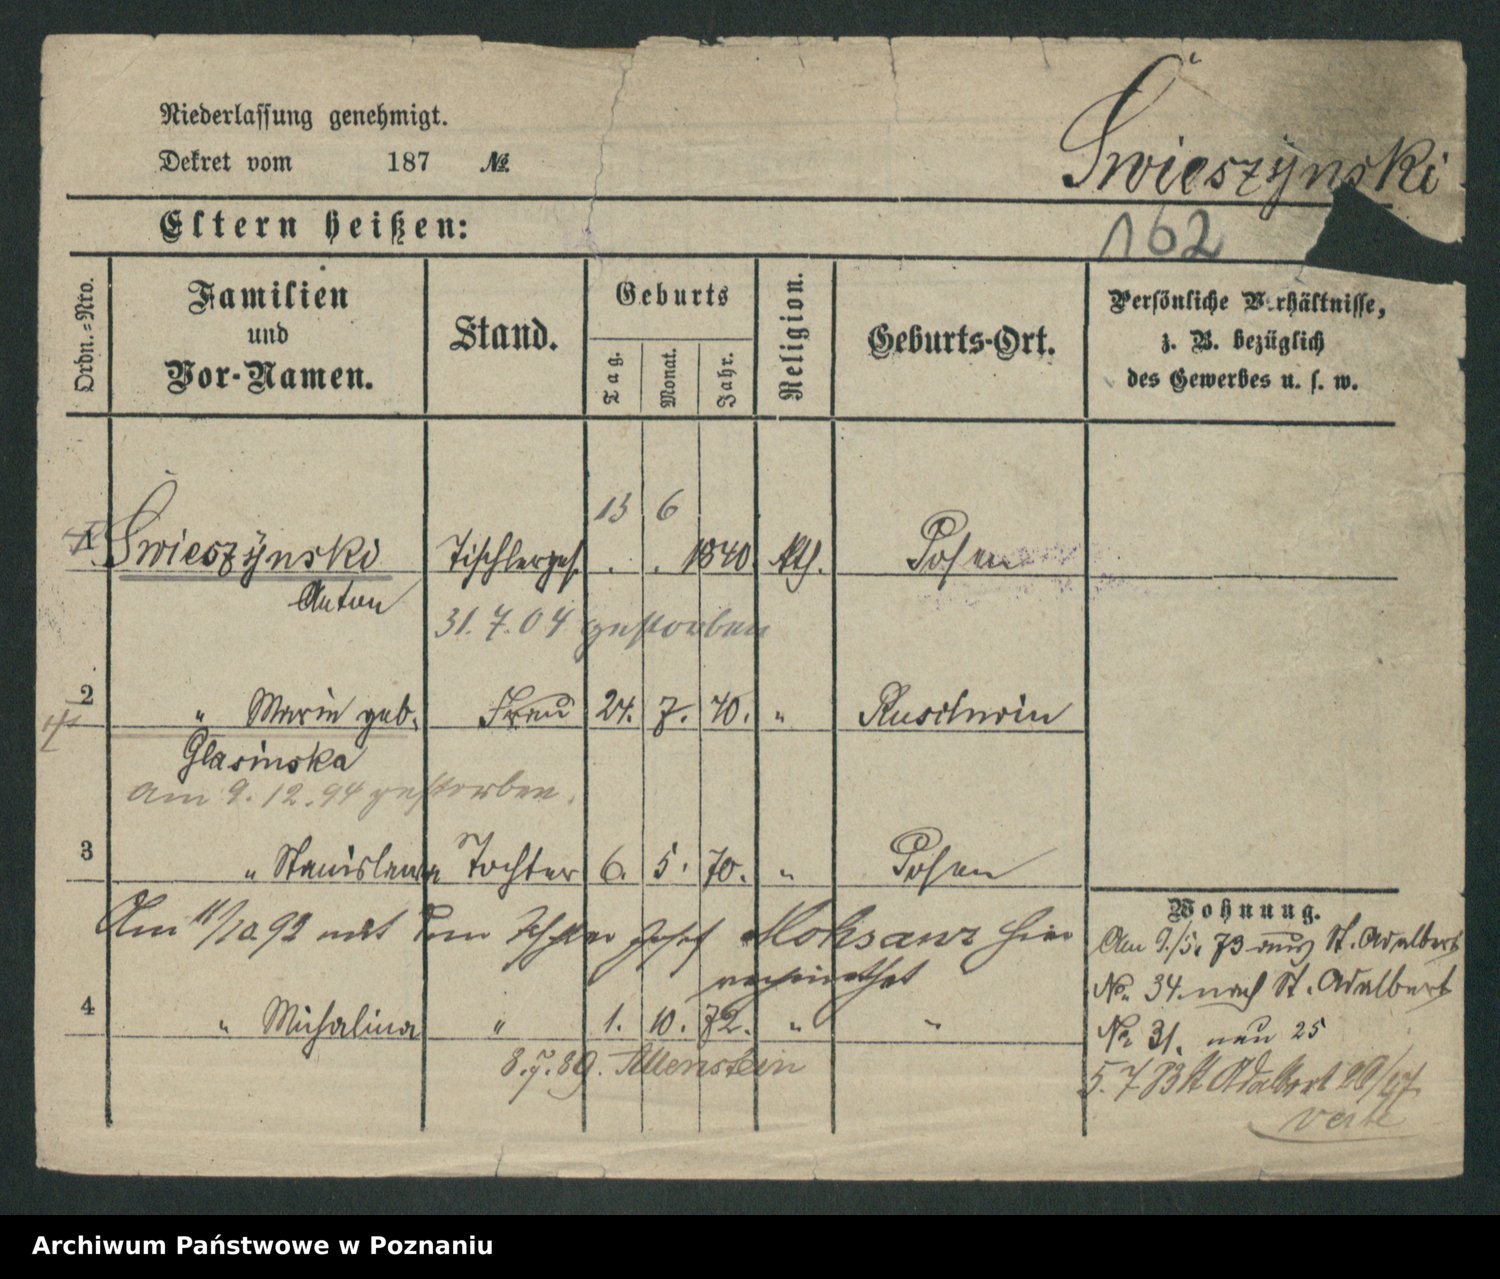 Niederlassung genehmigt.
Dekret vom 187 №
Świeszynski
Eltern heißen:
162
Ordn.=Nro.
Familien
und
Vor-Namen.
Stand.
Geburts
Tag.
Monat.
Jahr.
Religion.
Geburts-Ort.
Persönliche Verhältnisse,
z. B. bezüglich
des Gewerbes u. s. w.
13 6
1 Świeszynski Tischlerges. . . 1840. kth. Posen
Anton
31.7.04 gestorben
2 " Marie geb. Frau 24. 7. 40. "
Glasinska
am 9.12.94 gestorben.
3 " Stanislawa Tochter 6. 5. 70. " Posen
Am 11/10 92 mit dem Josef hier
verheirathet
4 " Michalina " 1. 10. 72. " "
8.7.89. Allenstein
Wohnung.
Am 9./5. 73 aus St. Adalbert
No. 34. nach St. Adalbert
No 31. neu 25
5.7 St Adalbert
verte
Archiwum Państwowe w Poznaniu